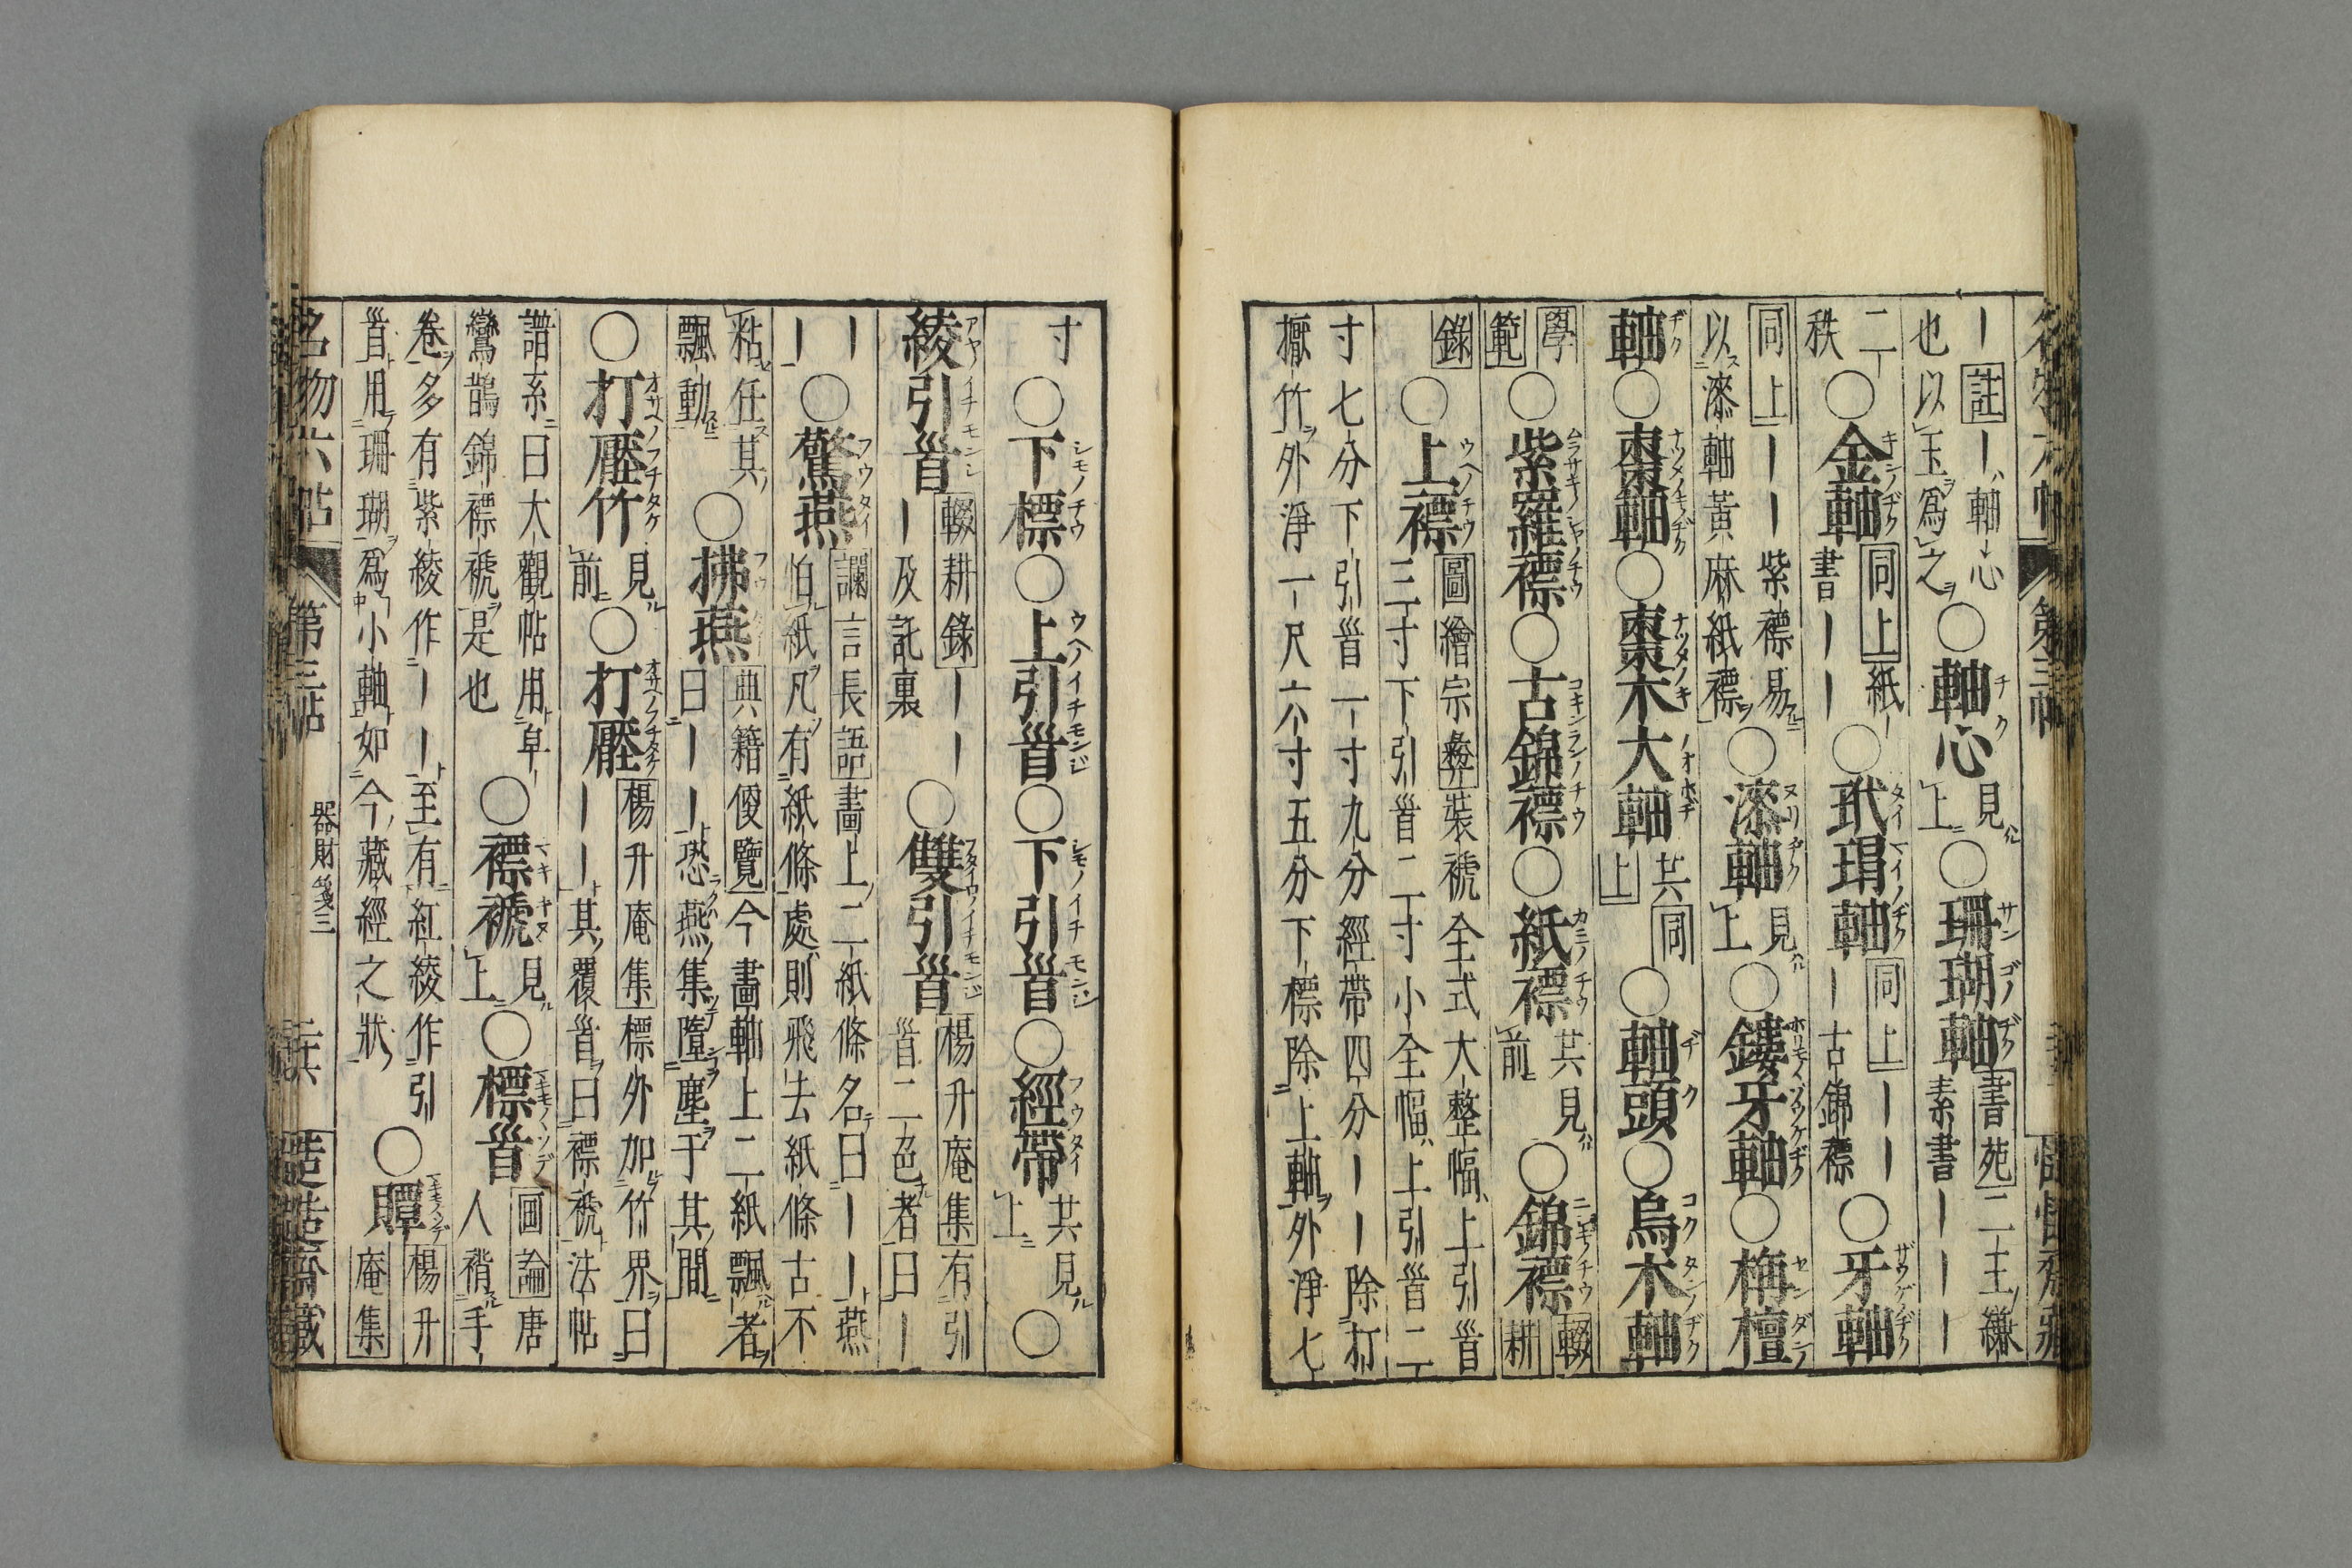 ｜註｜軸心也以玉爲之○軸心見上○珊瑚軸書苑二王縑素書｜｜｜
二秩○金軸同上紙｜書｜｜｜○玳瑁軸同上｜｜｜古錦褾○牙軸
同上｜｜紫褾易以漆軸黃麻紙褾○漆軸見上○鏤牙軸○栴檀
軸○棗軸○棗木大軸共同上○軸頭○烏木軸
學範○紫羅褾○古錦褾○紙褾共見前○錦褾輟耕
錄○上褾圖繪宗彝裝褫全式大整幅上引首三寸下引首二寸小全幅上引首二
寸七分下引首一寸九分經帶四分｜｜除打擫竹外淨一尺六寸五分下標除上軸外淨七
寸○下標○上引首○下引首○經帶共見上○
綾引首輟耕錄｜｜｜及託裏○雙引首楊升庵集有引首二色者曰｜
｜｜○驚燕讕言長語畫上二紙條名曰｜｜燕怕紙凡有紙條處則飛去紙條古不
粘任其飄動○拂燕典籍便覽今畫軸上二紙飄者曰｜｜恐燕集墮塵于其間
○打擫竹見前○打擫楊升庵集標外加竹界曰｜｜其覆首曰褾褫法帖
譜系曰大觀帖用皁鸞鵲錦褾褫是也○褾褫見上○標首畫論唐人褙手
卷多有紫綾作｜｜至有紅綾作引首用珊瑚爲小軸如今藏經之狀○贉楊升庵集
名物六帖 第三帖 器財箋三